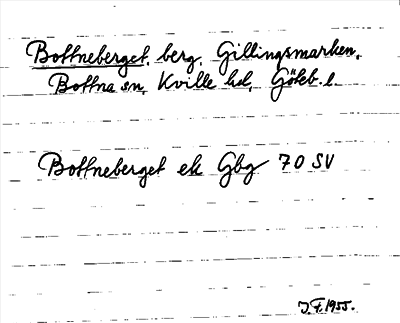 Bottneberget, berg, Gillingsmarken,
Bottna sn, Kville hd, Göteb. l.
Bottneberget ek Gbg 70 SV
J.F. 1955.